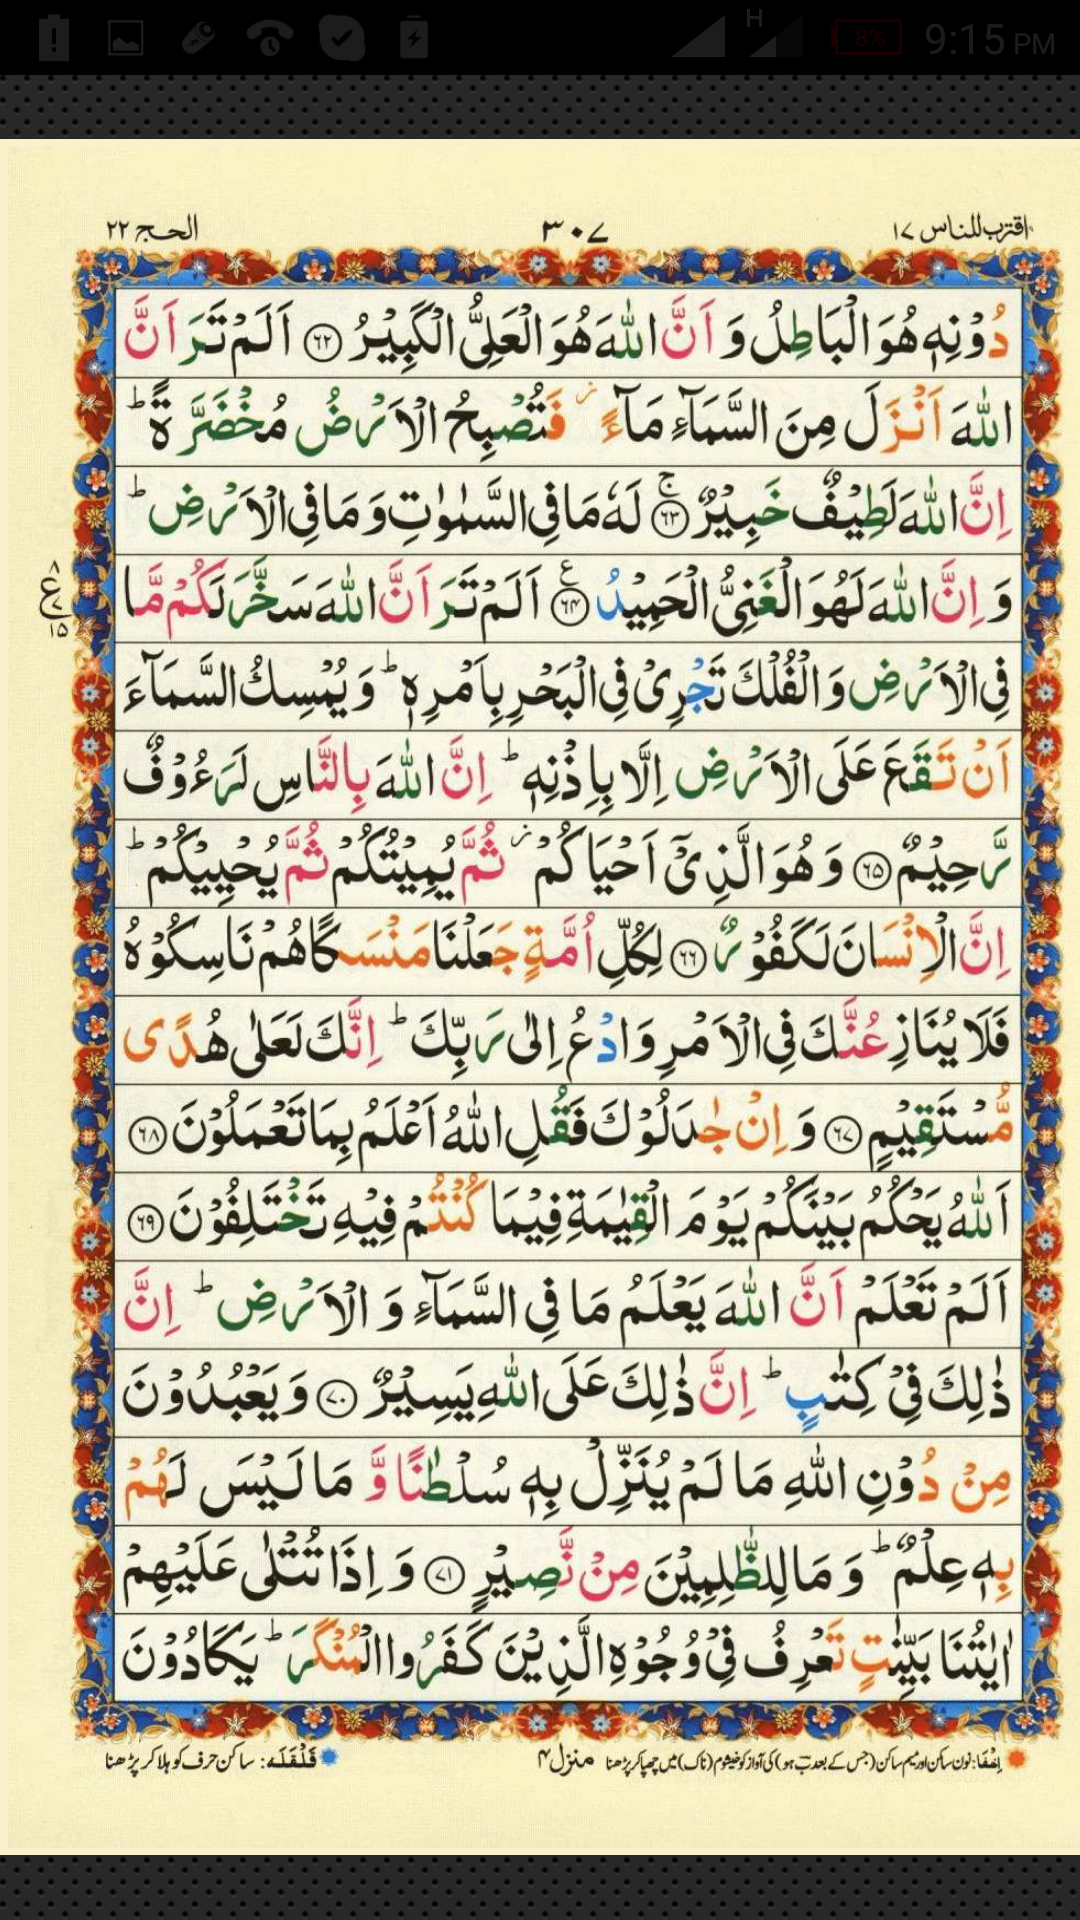 H 8% 9:15 PM
اقترب للناس ١٧ ٣٠٧ الحج ٢٢
دُوْنِهٖ هُوَ الْبَاطِلُ وَ اَنَّ اللّٰهَ هُوَ الْعَلِیُّ الْكَبِیْرُ ﴿۶۲﴾ اَلَمْ تَرَ اَنَّ
اللّٰهَ اَنْزَلَ مِنَ السَّمَآءِ مَآءً ؗ فَتُصْبِحُ الْاَرْضُ مُخْضَرَّةً ؕ
اِنَّ اللّٰهَ لَطِیْفٌ خَبِیْرٌ ﴿ۚ۶۳﴾ لَهٗ مَا فِی السَّمٰوٰتِ وَ مَا فِی الْاَرْضِ ؕ
وَ اِنَّ اللّٰهَ لَهُوَ الْغَنِیُّ الْحَمِیْدُ ﴿۶۴﴾ ع اَلَمْ تَرَ اَنَّ اللّٰهَ سَخَّرَ لَكُمْ مَّا
ع ٨ ٧ ١٥
فِی الْاَرْضِ وَ الْفُلْكَ تَجْرِیْ فِی الْبَحْرِ بِاَمْرِهٖ ؕ وَ یُمْسِكُ السَّمَآءَ
اَنْ تَقَعَ عَلَی الْاَرْضِ اِلَّا بِاِذْنِهٖ ؕ اِنَّ اللّٰهَ بِالنَّاسِ لَرَءُوْفٌ
رَّحِیْمٌ ﴿۶۵﴾ وَ هُوَ الَّذِیْۤ اَحْیَاكُمْ ؗ ثُمَّ یُمِیْتُكُمْ ثُمَّ یُحْیِیْكُمْ ؕ
اِنَّ الْاِنْسَانَ لَكَفُوْرٌ ﴿۶۶﴾ لِكُلِّ اُمَّةٍ جَعَلْنَا مَنْسَكًا هُمْ نَاسِكُوْهُ
فَلَا یُنَازِعُنَّكَ فِی الْاَمْرِ وَ ادْعُ اِلٰی رَبِّكَ ؕ اِنَّكَ لَعَلٰی هُدًی
مُّسْتَقِیْمٍ ﴿۶۷﴾ وَ اِنْ جٰدَلُوْكَ فَقُلِ اللّٰهُ اَعْلَمُ بِمَا تَعْمَلُوْنَ ﴿۶۸﴾
اَللّٰهُ یَحْكُمُ بَیْنَكُمْ یَوْمَ الْقِیٰمَةِ فِیْمَا كُنْتُمْ فِیْهِ تَخْتَلِفُوْنَ ﴿۶۹﴾
اَلَمْ تَعْلَمْ اَنَّ اللّٰهَ یَعْلَمُ مَا فِی السَّمَآءِ وَ الْاَرْضِ ؕ اِنَّ
ذٰلِكَ فِیْ كِتٰبٍ ؕ اِنَّ ذٰلِكَ عَلَی اللّٰهِ یَسِیْرٌ ﴿۷۰﴾ وَ یَعْبُدُوْنَ
مِنْ دُوْنِ اللّٰهِ مَا لَمْ یُنَزِّلْ بِهٖ سُلْطٰنًا وَّ مَا لَیْسَ لَهُمْ
بِهٖ عِلْمٌ ؕ وَ مَا لِلظّٰلِمِیْنَ مِنْ نَّصِیْرٍ ﴿۷۱﴾ وَ اِذَا تُتْلٰی عَلَیْهِمْ
اٰیٰتُنَا بَیِّنٰتٍ تَعْرِفُ فِیْ وُجُوْهِ الَّذِیْنَ كَفَرُوا الْمُنْكَرَ ؕ یَكَادُوْنَ
اِخفَا: نون ساکن اور میم ساکن (جس کے بعد ب ہو) کی آواز کو خیشوم (ناک) میں چھپا کر پڑھنا منزل ۴ قَلْقَلَه: ساکن حرف کو ہلا کر پڑھنا